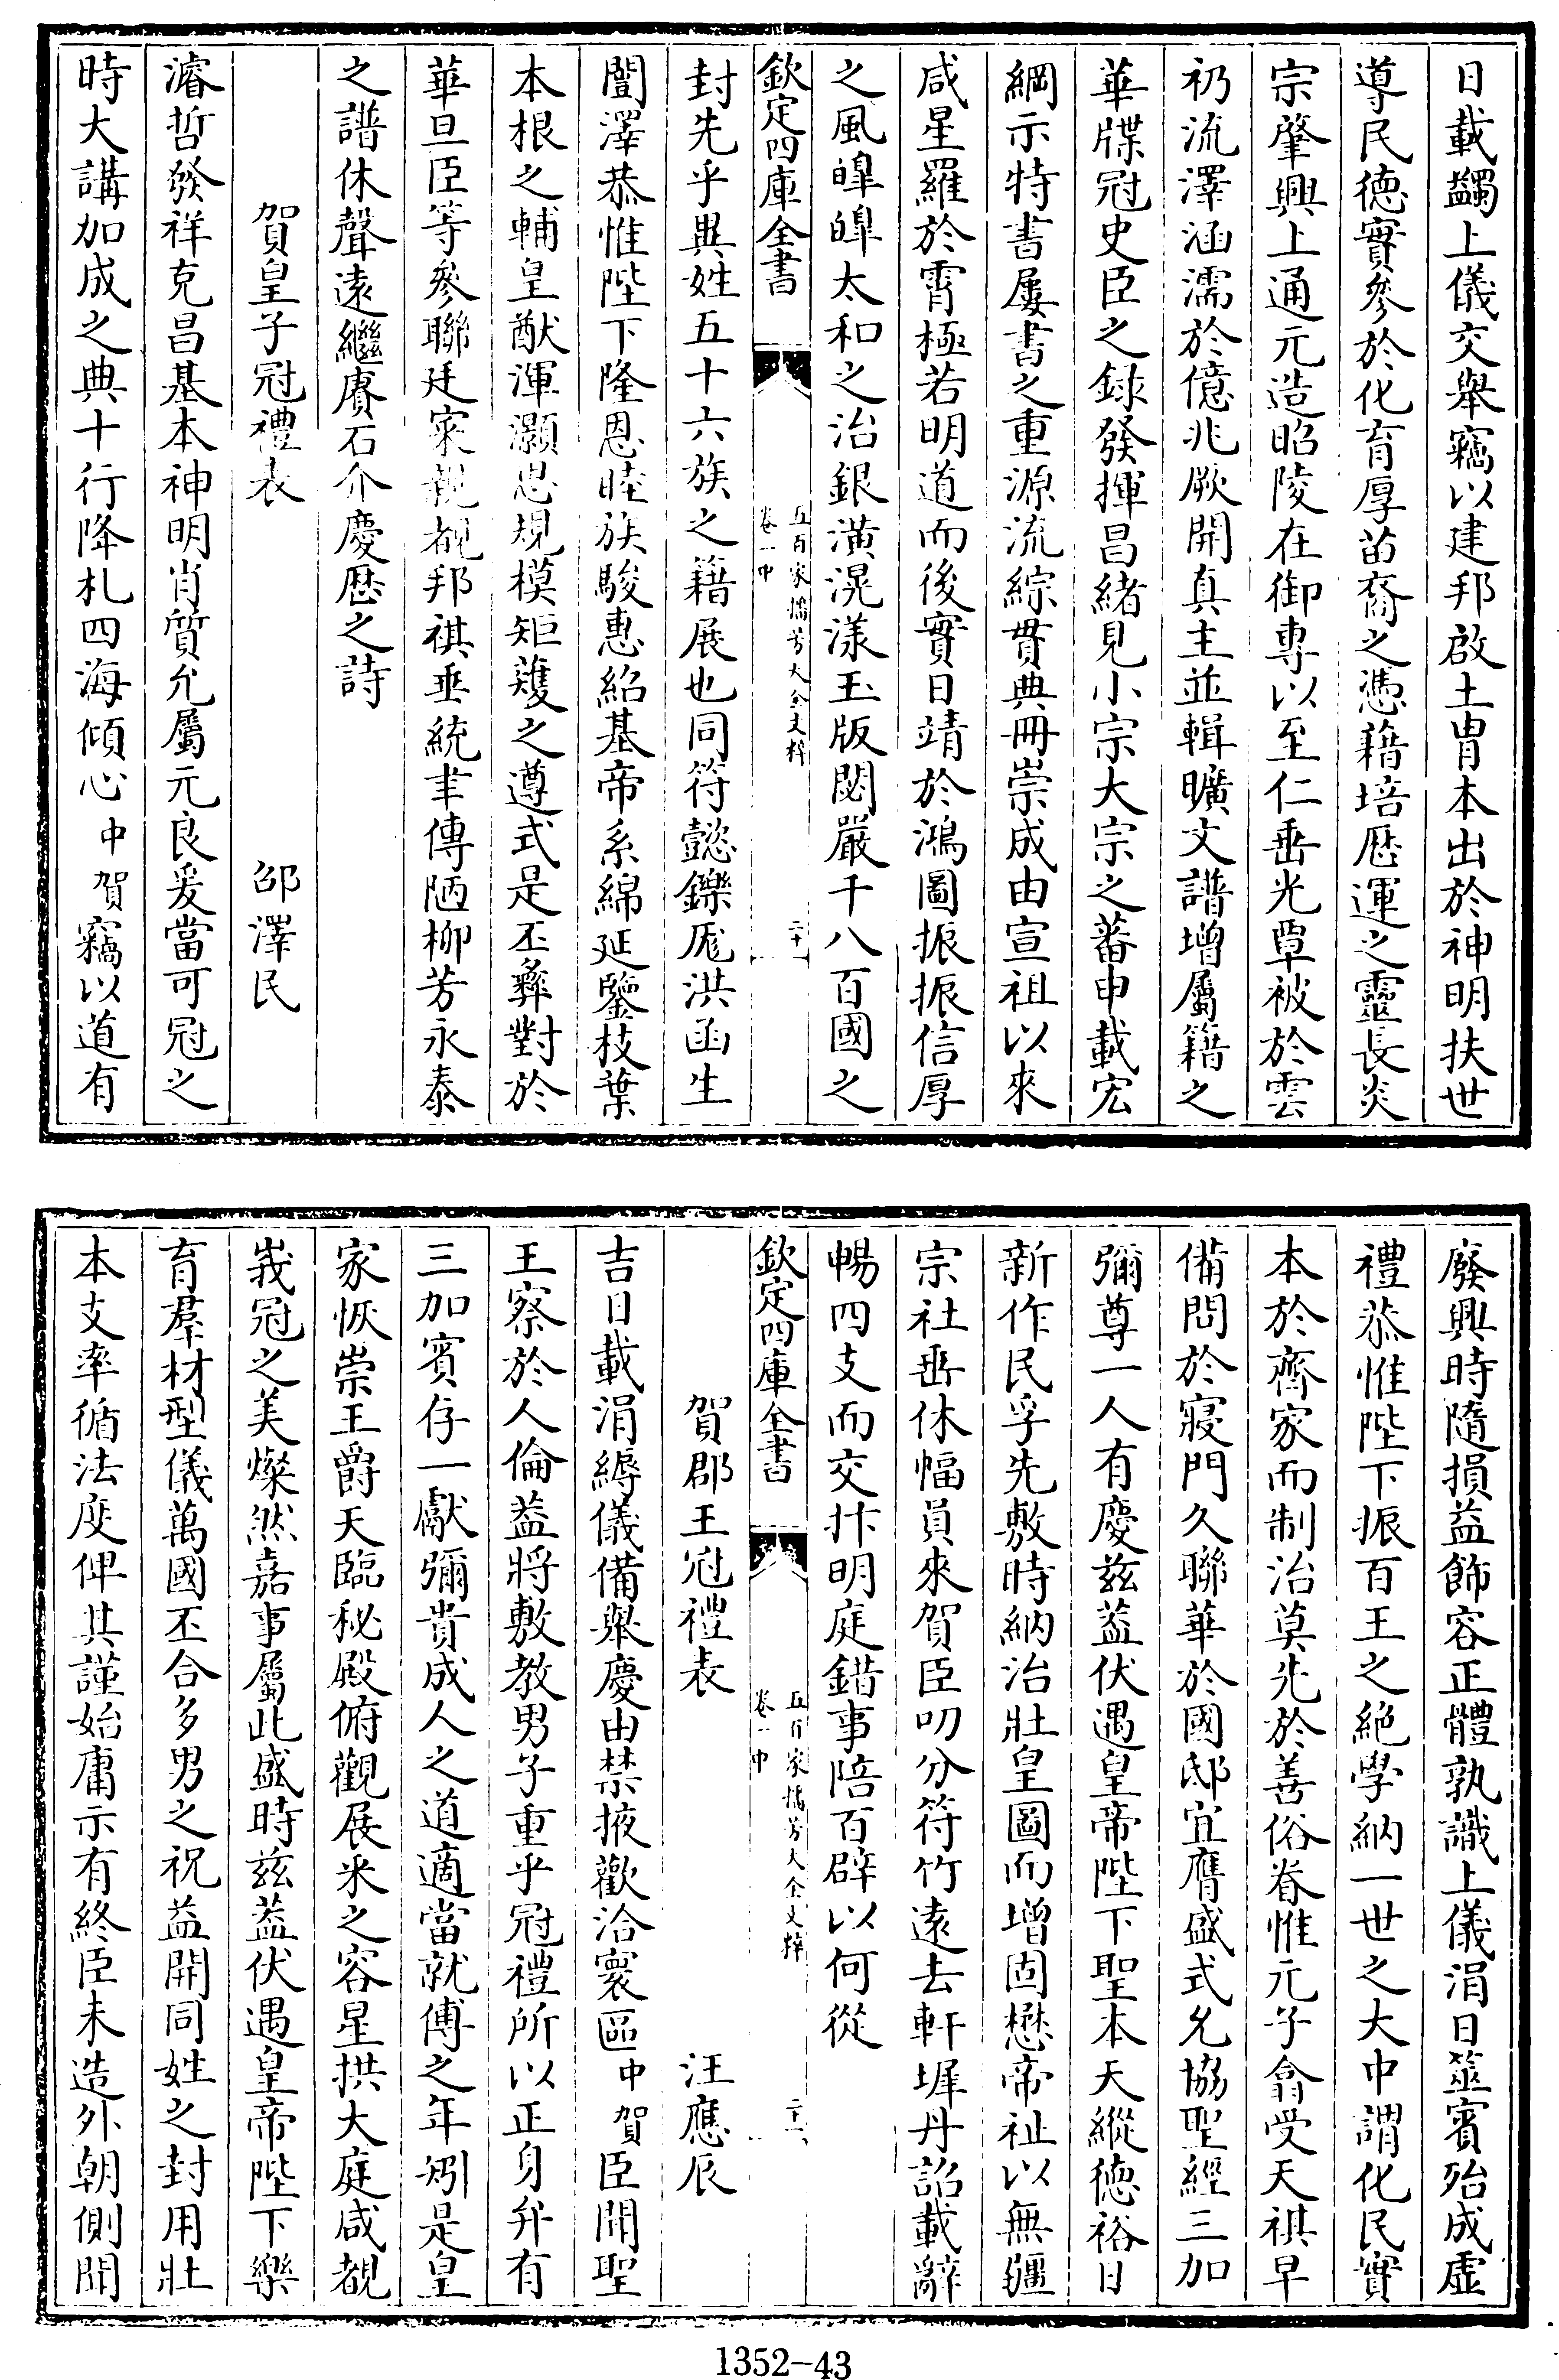 日載蠲上儀交舉竊以建邦啟土胄本出於神明扶世
導民徳實參於化育厚苗裔之憑藉培厯運之靈長炎
宗肇興上通元造昭陵在御專以至仁垂光覃被於雲
礽流澤涵濡於億兆厥開真主並輯曠文譜增屬籍之
華牒冠史臣之録發揮昌緒見小宗大宗之蕃申載宏
綱示特書屢書之重源流綜貫典冊崇成由宣祖以來
咸星羅於霄極若明道而後實日靖於鴻圖振振信厚
之風皥皥太和之治銀潢滉漾玉版閟嚴千八百國之
欽定四庫全書
五百家播芳大全文粹
卷一中
二十
封先乎異姓五十六族之籍展也同符懿鑠厖洪函生
闓澤恭惟陛下隆恩睦族駿惠紹基帝系綿延鑒枝葉
本根之輔皇猷渾灝思規模矩矱之遵式是丕彝對於
華旦臣等參聯廷寀親覩邦祺垂統聿傳陋柳芳永泰
之譜休聲遠繼賡石介慶厯之詩
賀皇子冠禮表
邵澤民
濬哲發祥克昌基本神明肖質允屬元良爰當可冠之
時大講加成之典十行降札四海傾心中賀竊以道有
廢興時隨損益飾容正體孰識上儀涓日筮賓殆成虛
禮恭惟陛下振百王之絶學納一世之大中謂化民實
本於齊家而制治莫先於善俗眷惟元子翕受天祺早
備問於寢門久聯華於國邸宜膺盛式允協聖經三加
彌尊一人有慶兹葢伏遇皇帝陛下聖本天縱徳裕日
新作民孚先敷時納治壯皇圖而增固懋帝祉以無疆
宗社垂休幅員來賀臣叨分符竹遠去軒墀丹詔載辭
暢四支而交抃明庭錯事陪百辟以何從
欽定四庫全書
五百家播芳大全文粹
卷一中
二十一
賀郡王冠禮表
汪應辰
吉日載涓縟儀備舉慶由禁掖歡洽寰區中賀臣聞聖
王察於人倫益將敷教男子重乎冠禮所以正身弁有
三加賓存一獻彌貴成人之道適當就傅之年矧是皇
家恢崇王爵天臨秘殿俯觀展采之容星拱大庭咸覩
峩冠之美燦然嘉事屬此盛時兹葢伏遇皇帝陛下樂
育羣材型儀萬國丕合多男之祝益開同姓之封用壯
本支率循法度俾其謹始庸示有終臣未造外朝側聞
1352-43